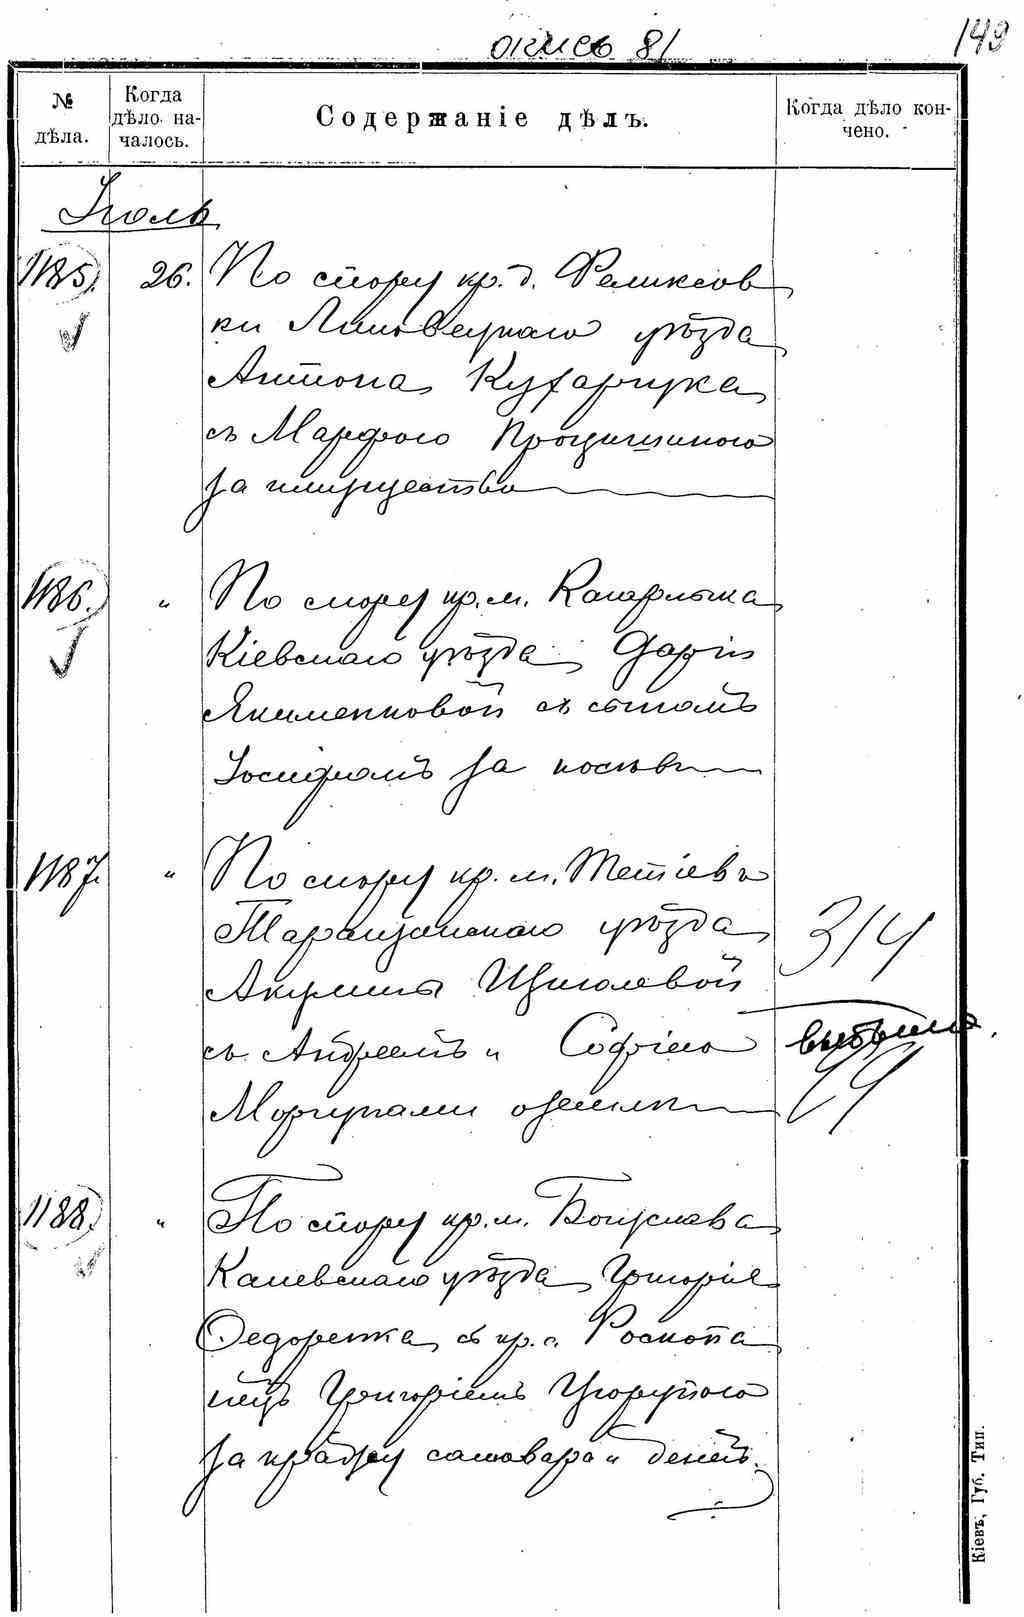 опись 81
149
№ дѣла.
Когда дѣло на-
чалось.
Содержаніе дѣлъ.
Когда дѣло кон-
чено.
Іюль
1185. 26. По спору кр. д. Феликсов
ки Липовецкаго уѣзда
Антона Кухарчука
съ Марфою Процишиною
за имущество
1186. " По спору кр. м. Кагарлыка
Кіевскаго уѣзда Дарьи
Якименковой съ сыномъ
Іосифомъ за
1187. " По спору кр. м. Тетіева
Таращанскаго уѣзда
Акулины Щиголевой
съ Андреемъ и Софіею
Моргунами о землѣ
314
1188. " По спору кр. м. Богуслава
Каневскаго уѣзда Григорія
Ѳедоренка съ кр. с. Роскопа
нецъ Григоріемъ
за кражу самовара и денегъ.
Кіевъ, Губ. Тип.